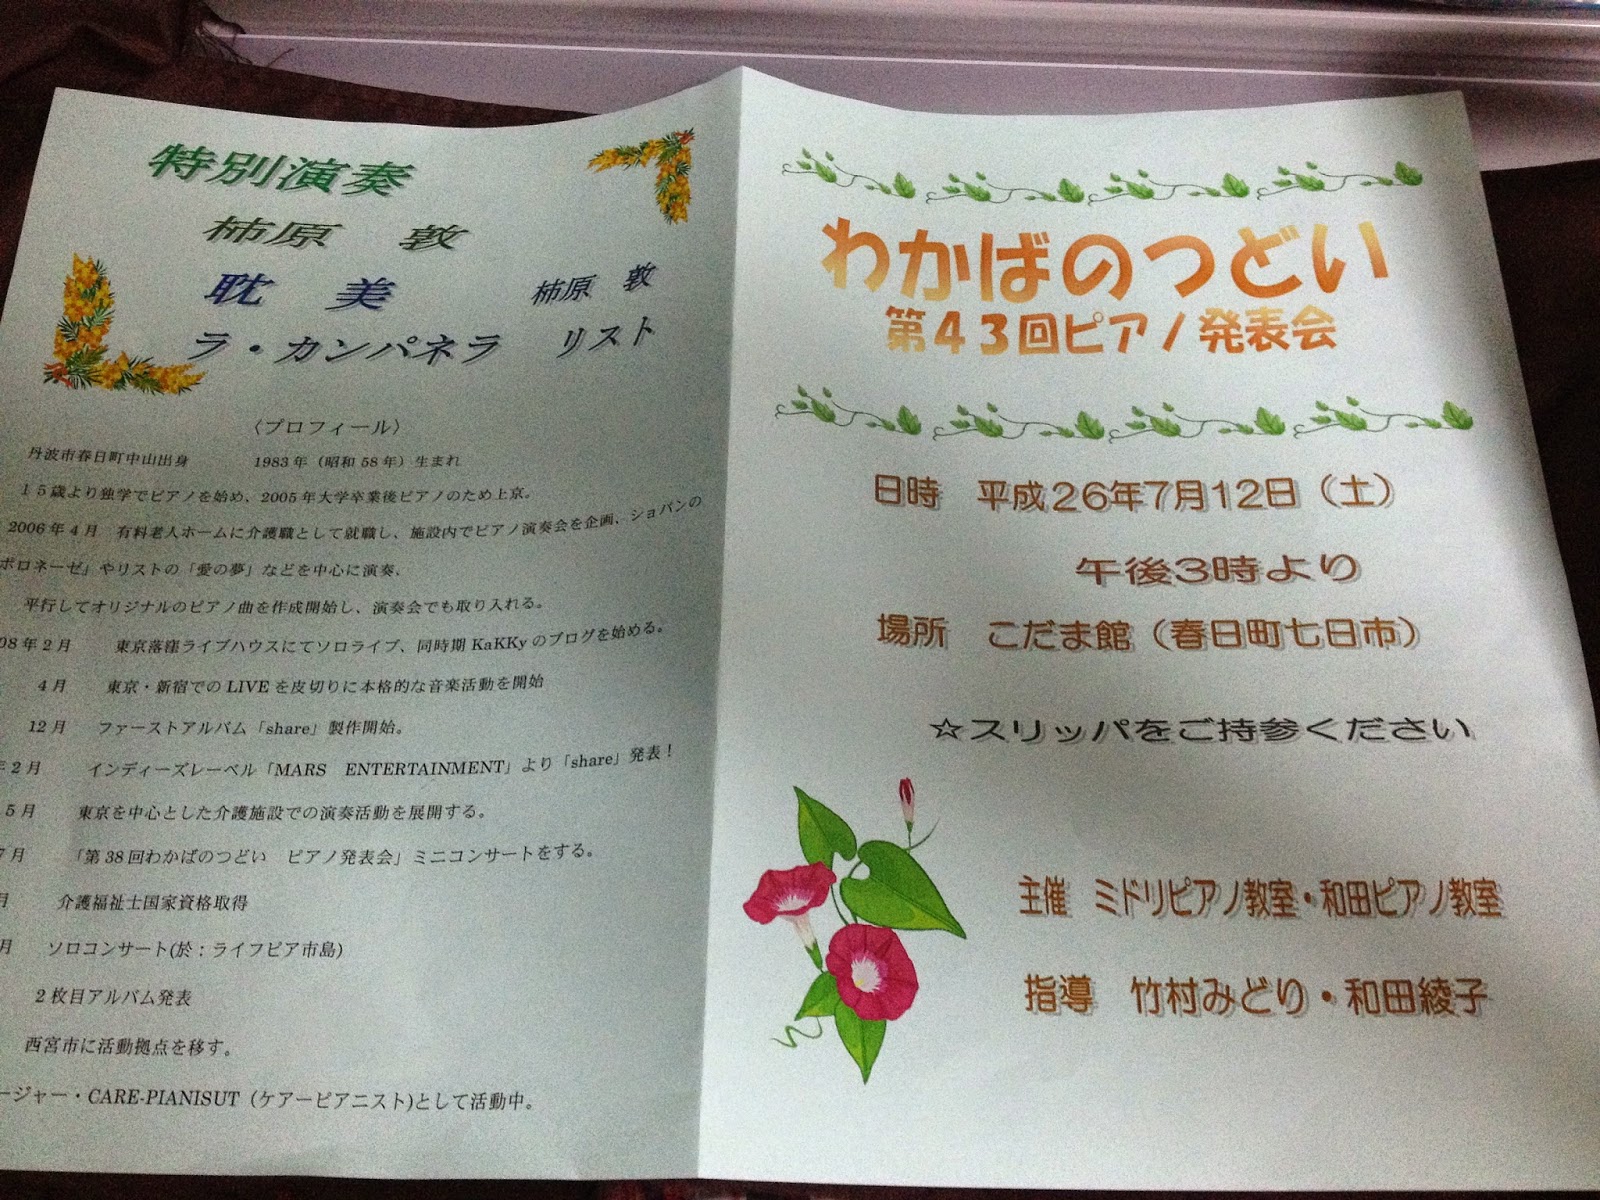 特別演奏
柿原 敦
耽 美 柿原 敦
ラ・カンパネラ リスト
〈プロフィール〉
丹波市春日町中山出身 1983年（昭和58年）生まれ
15歳より独学でピアノを始め、2005年大学卒業後ピアノのため上京。
2006年4月 有料老人ホームに介護職として就職し、施設内でピアノ演奏会を企画、ショパンの
ポロネーゼ」やリストの「愛の夢」などを中心に演奏、
平行してオリジナルのピアノ曲を作成開始し、演奏会でも取り入れる。
08年2月 東京落窪ライブハウスにてソロライブ、同時期KaKKyのブログを始める。
4月 東京・新宿でのLIVEを皮切りに本格的な音楽活動を開始
12月 ファーストアルバム「share」製作開始。
年2月 インディーズレーベル「MARS ENTERTAINMENT」より「share」発表！
5月 東京を中心とした介護施設での演奏活動を展開する。
7月 「第38回わかばのつどい ピアノ発表会」ミニコンサートをする。
月 介護福祉士国家資格取得
月 ソロコンサート(於：ライフピア市島)
2枚目アルバム発表
西宮市に活動拠点を移す。
ージャー・CARE-PIANISUT（ケアーピアニスト)として活動中。
わかばのつどい
第43回ピアノ発表会
日時 平成26年7月12日（土）
午後3時より
場所 こだま館（春日町七日市）
☆スリッパをご持参ください
主催 ミドリピアノ教室・和田ピアノ教室
指導 竹村みどり・和田綾子